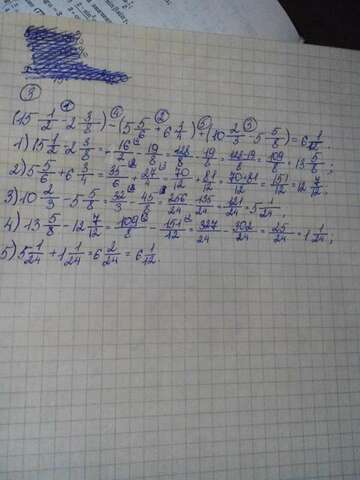 ③
(15 1/2 - 2 3/8) - (5 5/6 + 6 3/4) + (10 2/3 - 5 5/8) = 6 1/12.
1) 15 1/2 - 2 3/8 = 16/2 - 19/8 = 128/8 - 19/8 = 128-19/8 = 109/8 = 13 5/8;
2) 5 5/6 + 6 3/4 = 35/6 + 27/4 = 70/12 + 81/12 = 70+81/12 = 151/12 = 12 7/12;
3) 10 2/3 - 5 5/8 = 32/3 - 45/8 = 256/24 - 135/24 = 121/24 = 5 1/24;
4) 13 5/8 - 12 7/12 = 109/8 - 151/12 = 327/24 - 302/24 = 25/24 = 1 1/24;
5) 5 1/24 + 1 1/24 = 6 2/24 = 6 1/12.